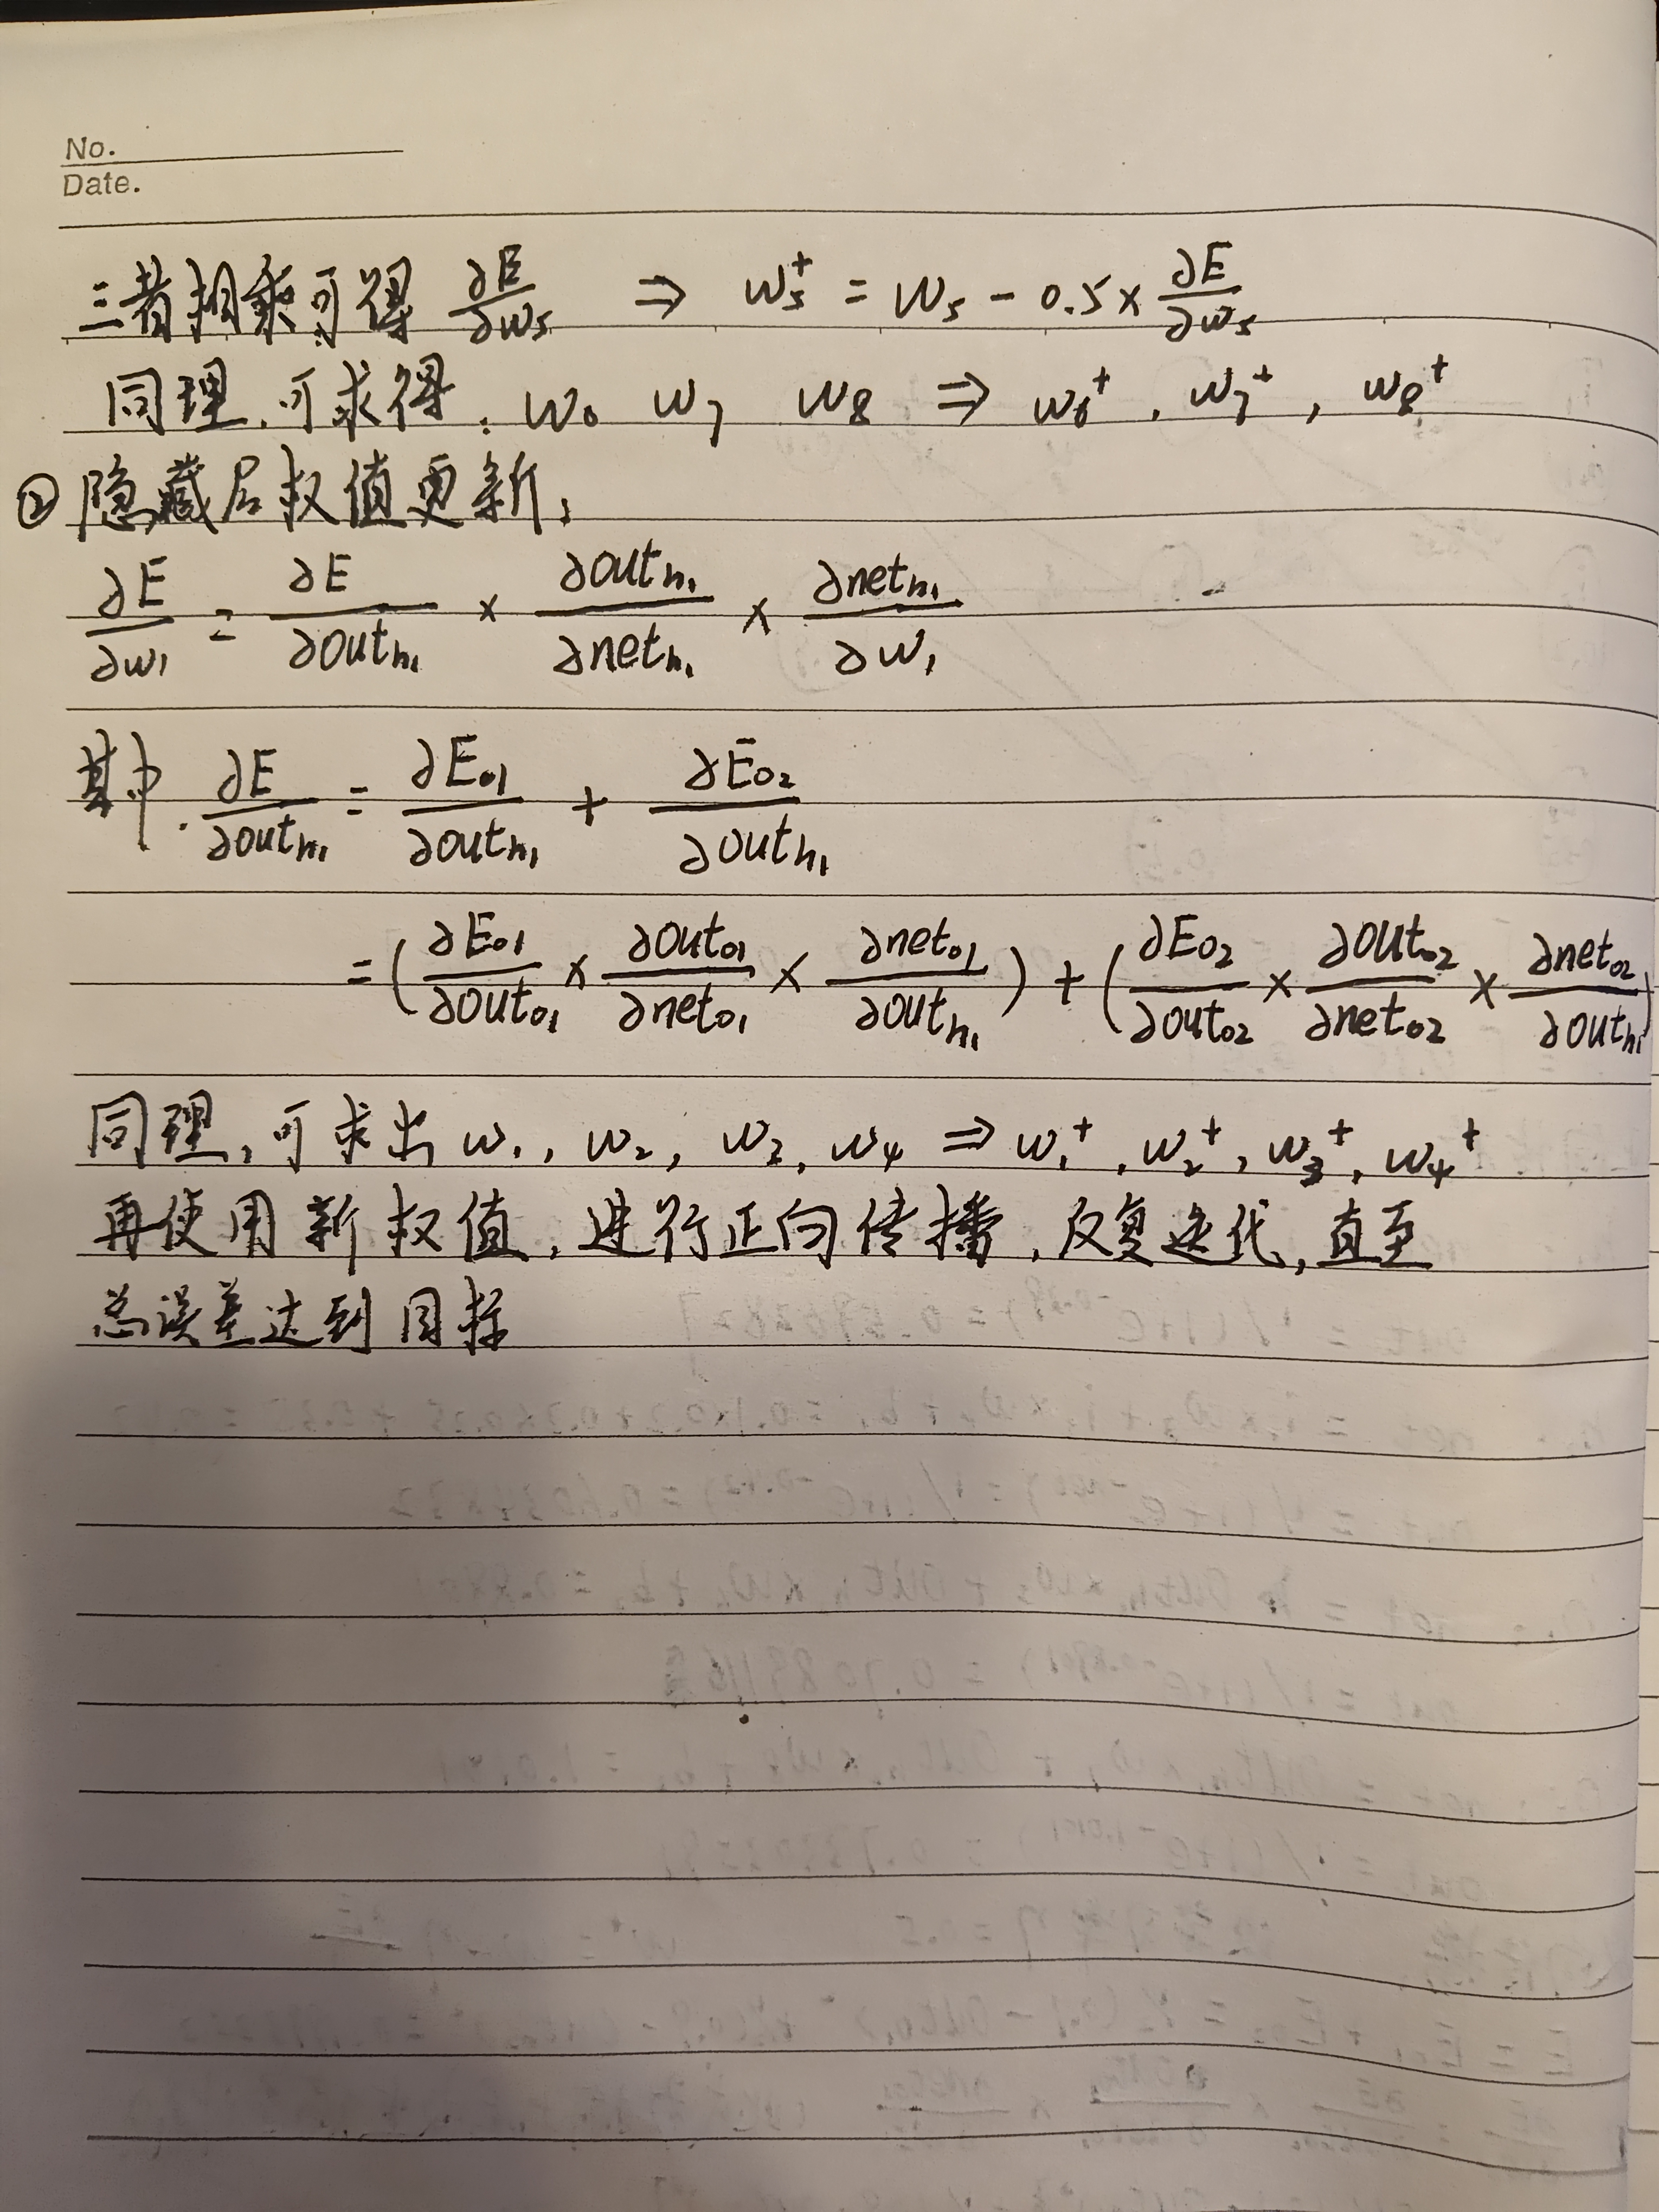 No.
Date.
三者相乘可得 ∂E/∂w₅ ⇒ w₅⁺ = w₅ - 0.5 × ∂E/∂w₅
同理,可求得: w₆ w₇ w₈ ⇒ w₆⁺, w₇⁺, w₈⁺
② 隐藏层权值更新:
∂E/∂w₁ = ∂E/∂out_h₁ × ∂out_h₁/∂net_h₁ × ∂net_h₁/∂w₁
其中. ∂E/∂out_h₁ = ∂E_o1/∂out_h₁ + ∂E_o2/∂out_h₁
= (∂E_o1/∂out_o1 × ∂out_o1/∂net_o1 × ∂net_o1/∂out_h₁) + (∂E_o2/∂out_o2 × ∂out_o2/∂net_o2 × ∂net_o2/∂out_h₁)
同理,可求出 w₁, w₂, w₃, w₄ ⇒ w₁⁺, w₂⁺, w₃⁺, w₄⁺
再使用新权值,进行正向传播,反复迭代,直至
总误差达到目标